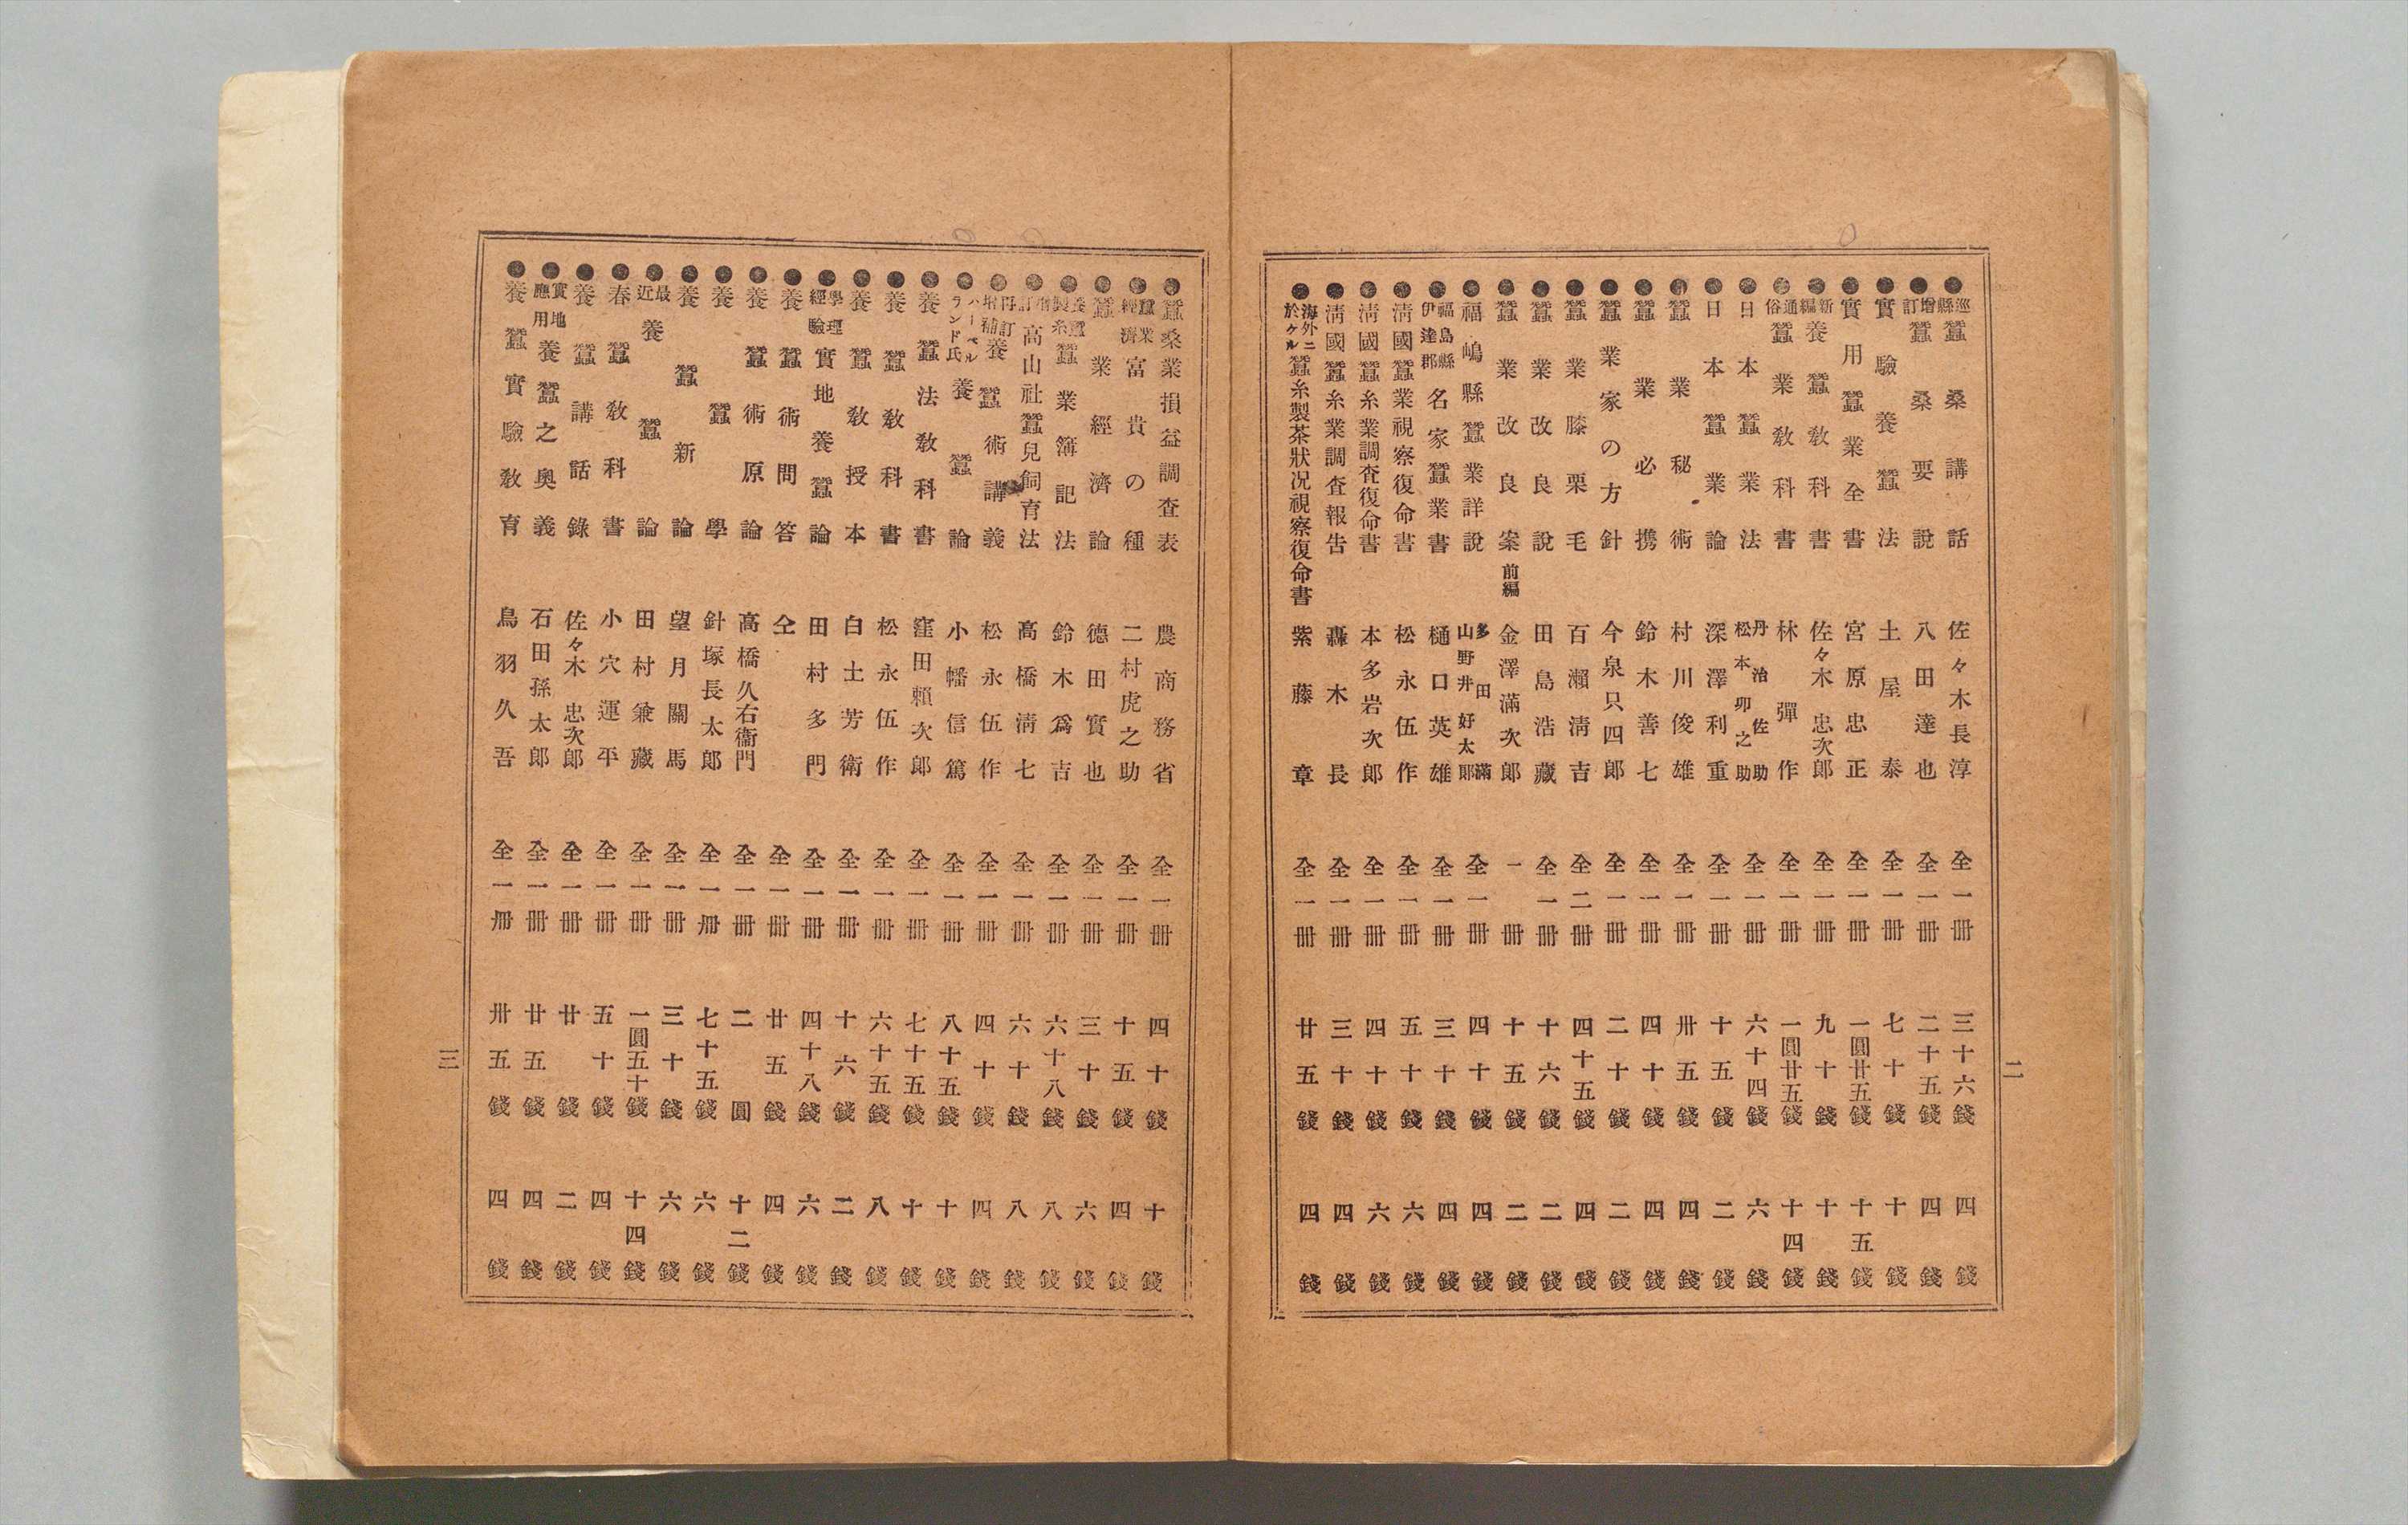 二
●巡縣蠶桑講話 佐々木長淳 全一冊 三十六錢 四錢
●增訂蠶桑要說 八田達也 全一冊 二十五錢 四錢
●實驗養蠶法 土屋泰 全一冊 七十錢 十錢
●實用蠶業全書 宮原忠正 全一冊 一圓廿五錢 十五錢
●新編養蠶教科書 佐々木忠次郎 全一冊 九十錢 十錢
●通俗蠶業教科書 林彈作 全一冊 一圓廿五錢 十四錢
●日本蠶業法 丹治佐助 松本卯之助 全一冊 六十四錢 六錢
●日本蠶業論 深澤利重 全一冊 十五錢 二錢
●蠶業秘術 村川俊雄 全一冊 卅五錢 四錢
●蠶業必携 鈴木善七 全一冊 四十錢 四錢
●蠶業家の方針 今泉只四郎 全一冊 二十錢 二錢
●蠶業膝栗毛 百瀨淸吉 全二冊 四十五錢 四錢
●蠶業改良說 田島浩藏 全一冊 十六錢 二錢
●蠶業改良案前編 金澤滿次郎 一冊 十五錢 二錢
●福嶋縣蠶業詳說 多田滿 山野井好太郎 全一冊 四十錢 四錢
●福島縣伊達郡名家蠶業書 樋口英雄 全一冊 三十錢 四錢
●淸國蠶業視察復命書 松永伍作 全一冊 五十錢 六錢
●淸國蠶糸業調査復命書 本多岩次郎 全一冊 四十錢 六錢
●淸國蠶糸業調査報告 轟木長 全一冊 三十錢 四錢
●海外ニ於ケル蠶糸製茶狀况視察復命書 紫藤章 全一冊 廿五錢 四錢
●蠶桑業損益調査表 農商務省 全一冊 四十錢 十錢
●蠶業經濟富貴の種 二村虎之助 全一冊 十五錢 四錢
●蠶業經濟論 德田實也 全一冊 三十錢 六錢
●養蠶製糸蠶業簿記法 鈴木爲吉 全一冊 六十八錢 八錢
●增訂高山社蠶兒飼育法 髙橋淸七 全一冊 六十錢 八錢
●再訂增補養蠶術講義 松永伍作 全一冊 四十錢 四錢
●ハーベルランド氏養蠶論 小幡信篤 全一冊 八十五錢 十錢
●養蠶法敎科書 窪田賴次郎 全一冊 七十五錢 十錢
●養蠶敎科書 松永伍作 全一冊 六十五錢 八錢
●養蠶敎授本 白土芳衛 全一冊 十六錢 二錢
●學理經驗實地養蠶論 田村多門 全一冊 四十八錢 六錢
●養蠶術問答 仝 全一冊 廿五錢 四錢
●養蠶術原論 髙橋久右衞門 全一冊 二圓 十二錢
●養蠶學 針塚長太郎 全一冊 七十五錢 六錢
●養蠶新論 望月關馬 全一冊 三十錢 六錢
●最近養蠶論 田村兼藏 全一冊 一圓五十錢 十四錢
●春蠶敎科書 小穴運平 全一冊 五十錢 四錢
●養蠶講話錄 佐々木忠次郎 全一冊 廿錢 二錢
●實地應用養蠶之奥義 石田孫太郎 全一冊 廿五錢 四錢
●養蠶實驗敎育 鳥羽久吾 全一冊 卅五錢 四錢
三